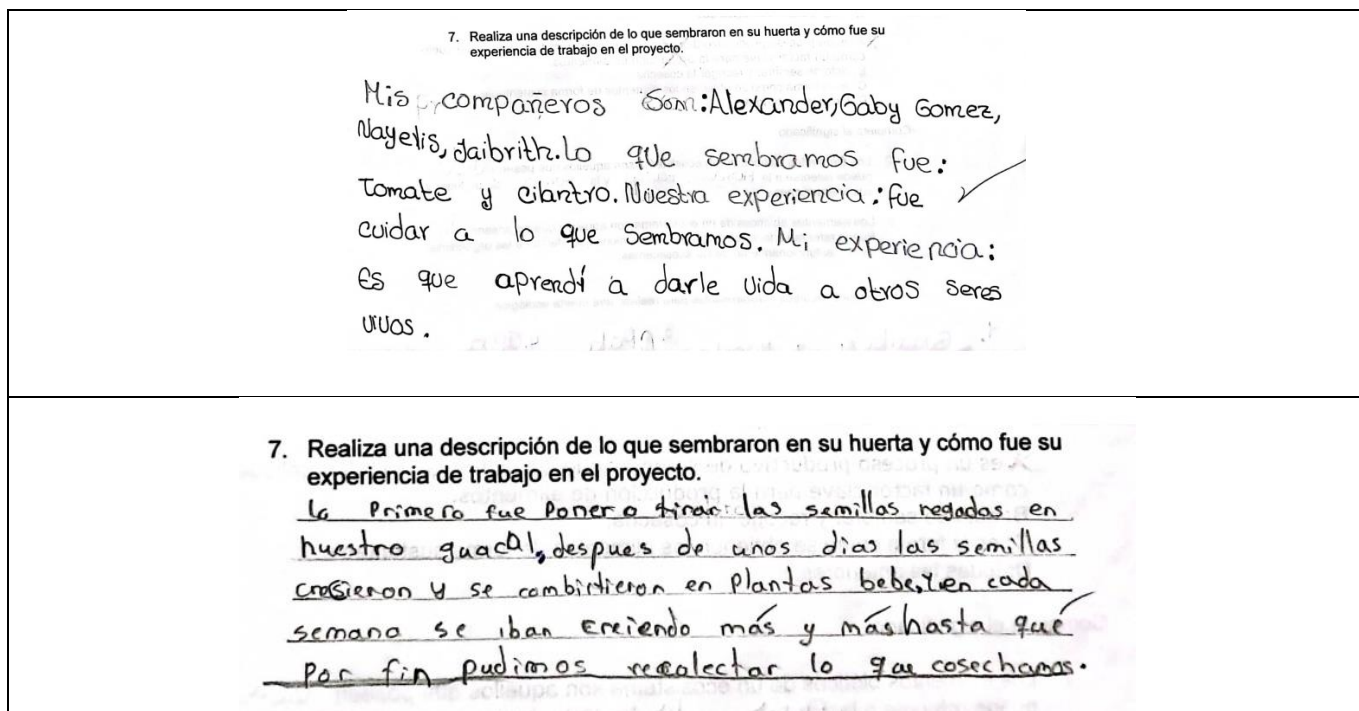 7. Realiza una descripción de lo que sembraron en su huerta y cómo fue su
experiencia de trabajo en el proyecto.
Mis compañeros Son: Alexander, Gaby Gomez,
Nayelis, Jaibrith. Lo que sembramos fue:
Tomate y cilantro. Nuestra experiencia: fue
cuidar a lo que Sembramos. Mi experiencia:
Es que aprendí a darle vida a otros seres
vivos.
7. Realiza una descripción de lo que sembraron en su huerta y cómo fue su
experiencia de trabajo en el proyecto.
lo Primero fue Poner o tirar las semillas regadas en
nuestro guacal, despues de unos días las semillas
cresieron y se combirtieron en Plantas bebe, y en cada
semana se iban creiendo más y más hasta qué
Por fin pudimos recalectar lo que cosechamos.